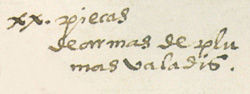 xx. pieças
de armas de plu
mas valadis.